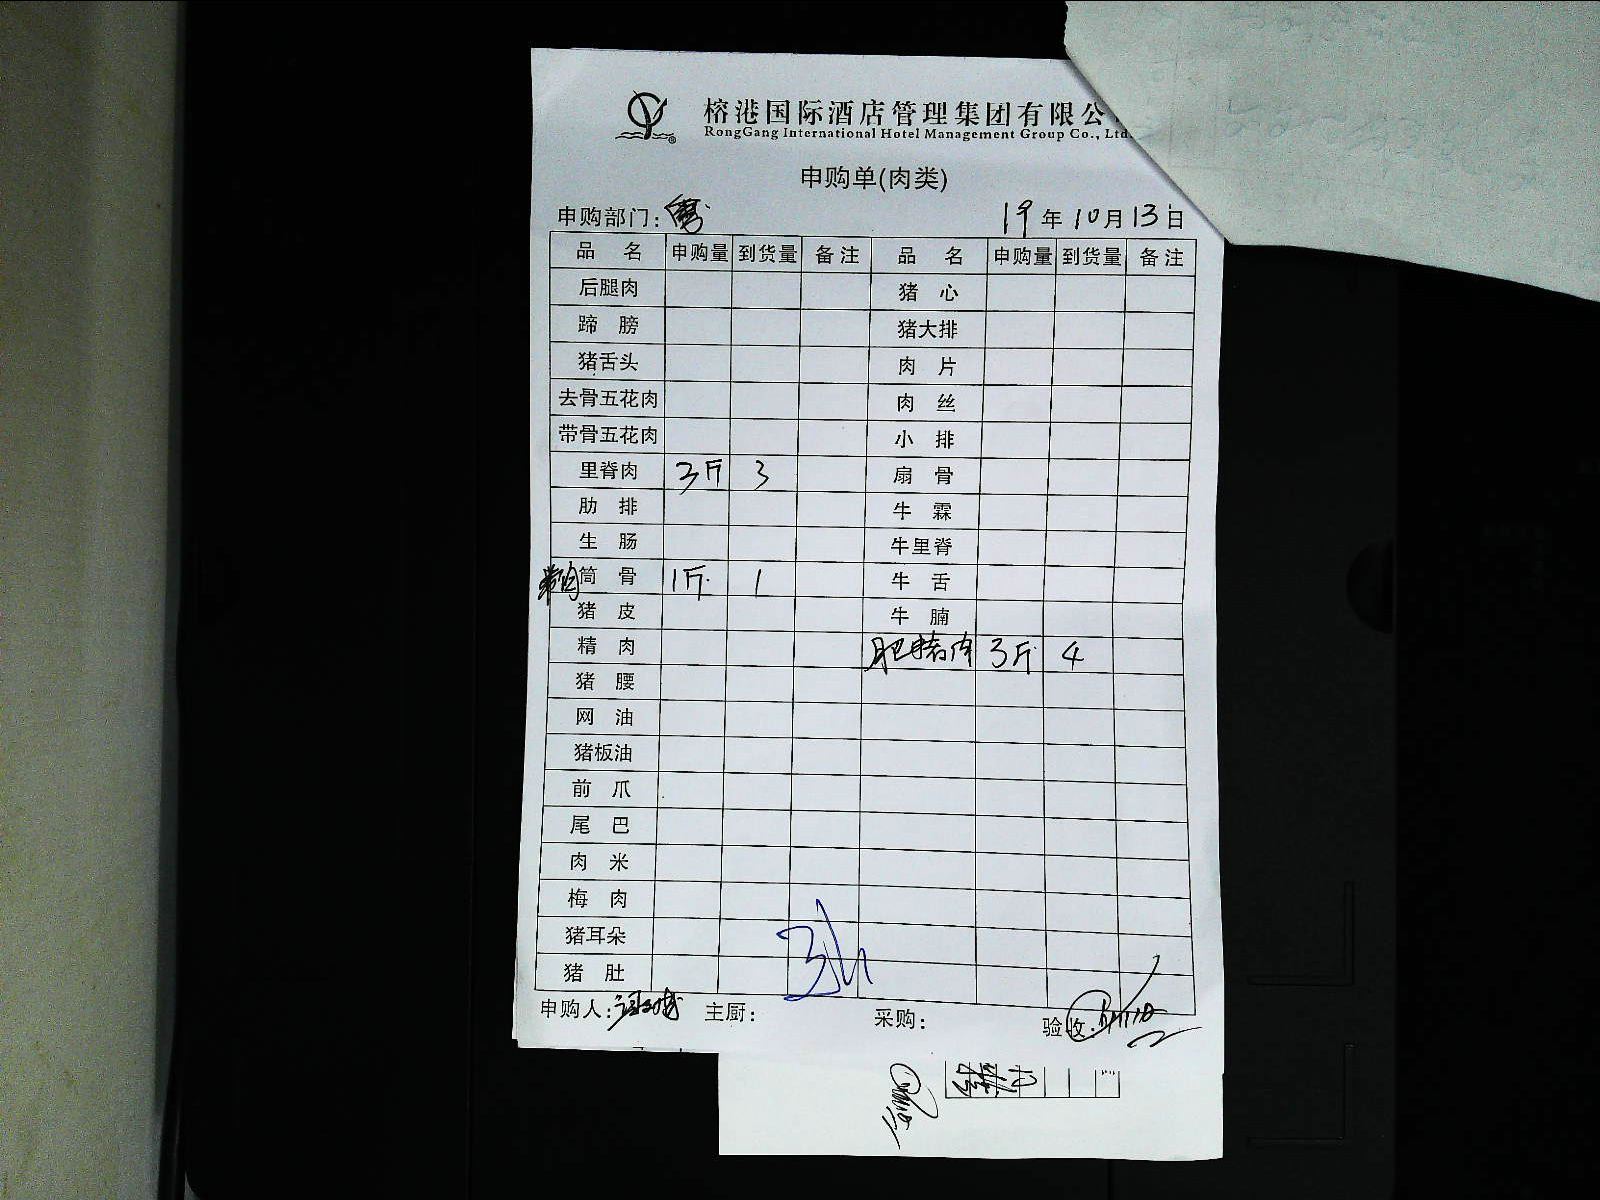 榕港国际酒店管理集团有限公
RongGang International Hotel Management Group Co., Ltd
申购单(肉类)
申购部门: 19年10月13日
品 名 申购量 到货量 备注 品 名 申购量 到货量 备注
后腿肉 猪 心
蹄 膀 猪大排
猪舌头 肉 片
去骨五花肉 肉 丝
带骨五花肉 小 排
里脊肉 3斤 3 扇 骨
肋 排 牛 霖
生 肠 牛里脊
带肉筒 骨 1斤 1 牛 舌
猪 皮 牛 腩
精 肉 肥猪肉 3斤 4
猪 腰
网 油
猪板油
前 爪
尾 巴
肉 米
梅 肉
猪耳朵
猪 肚
申购人: 主厨: 采购: 验收: